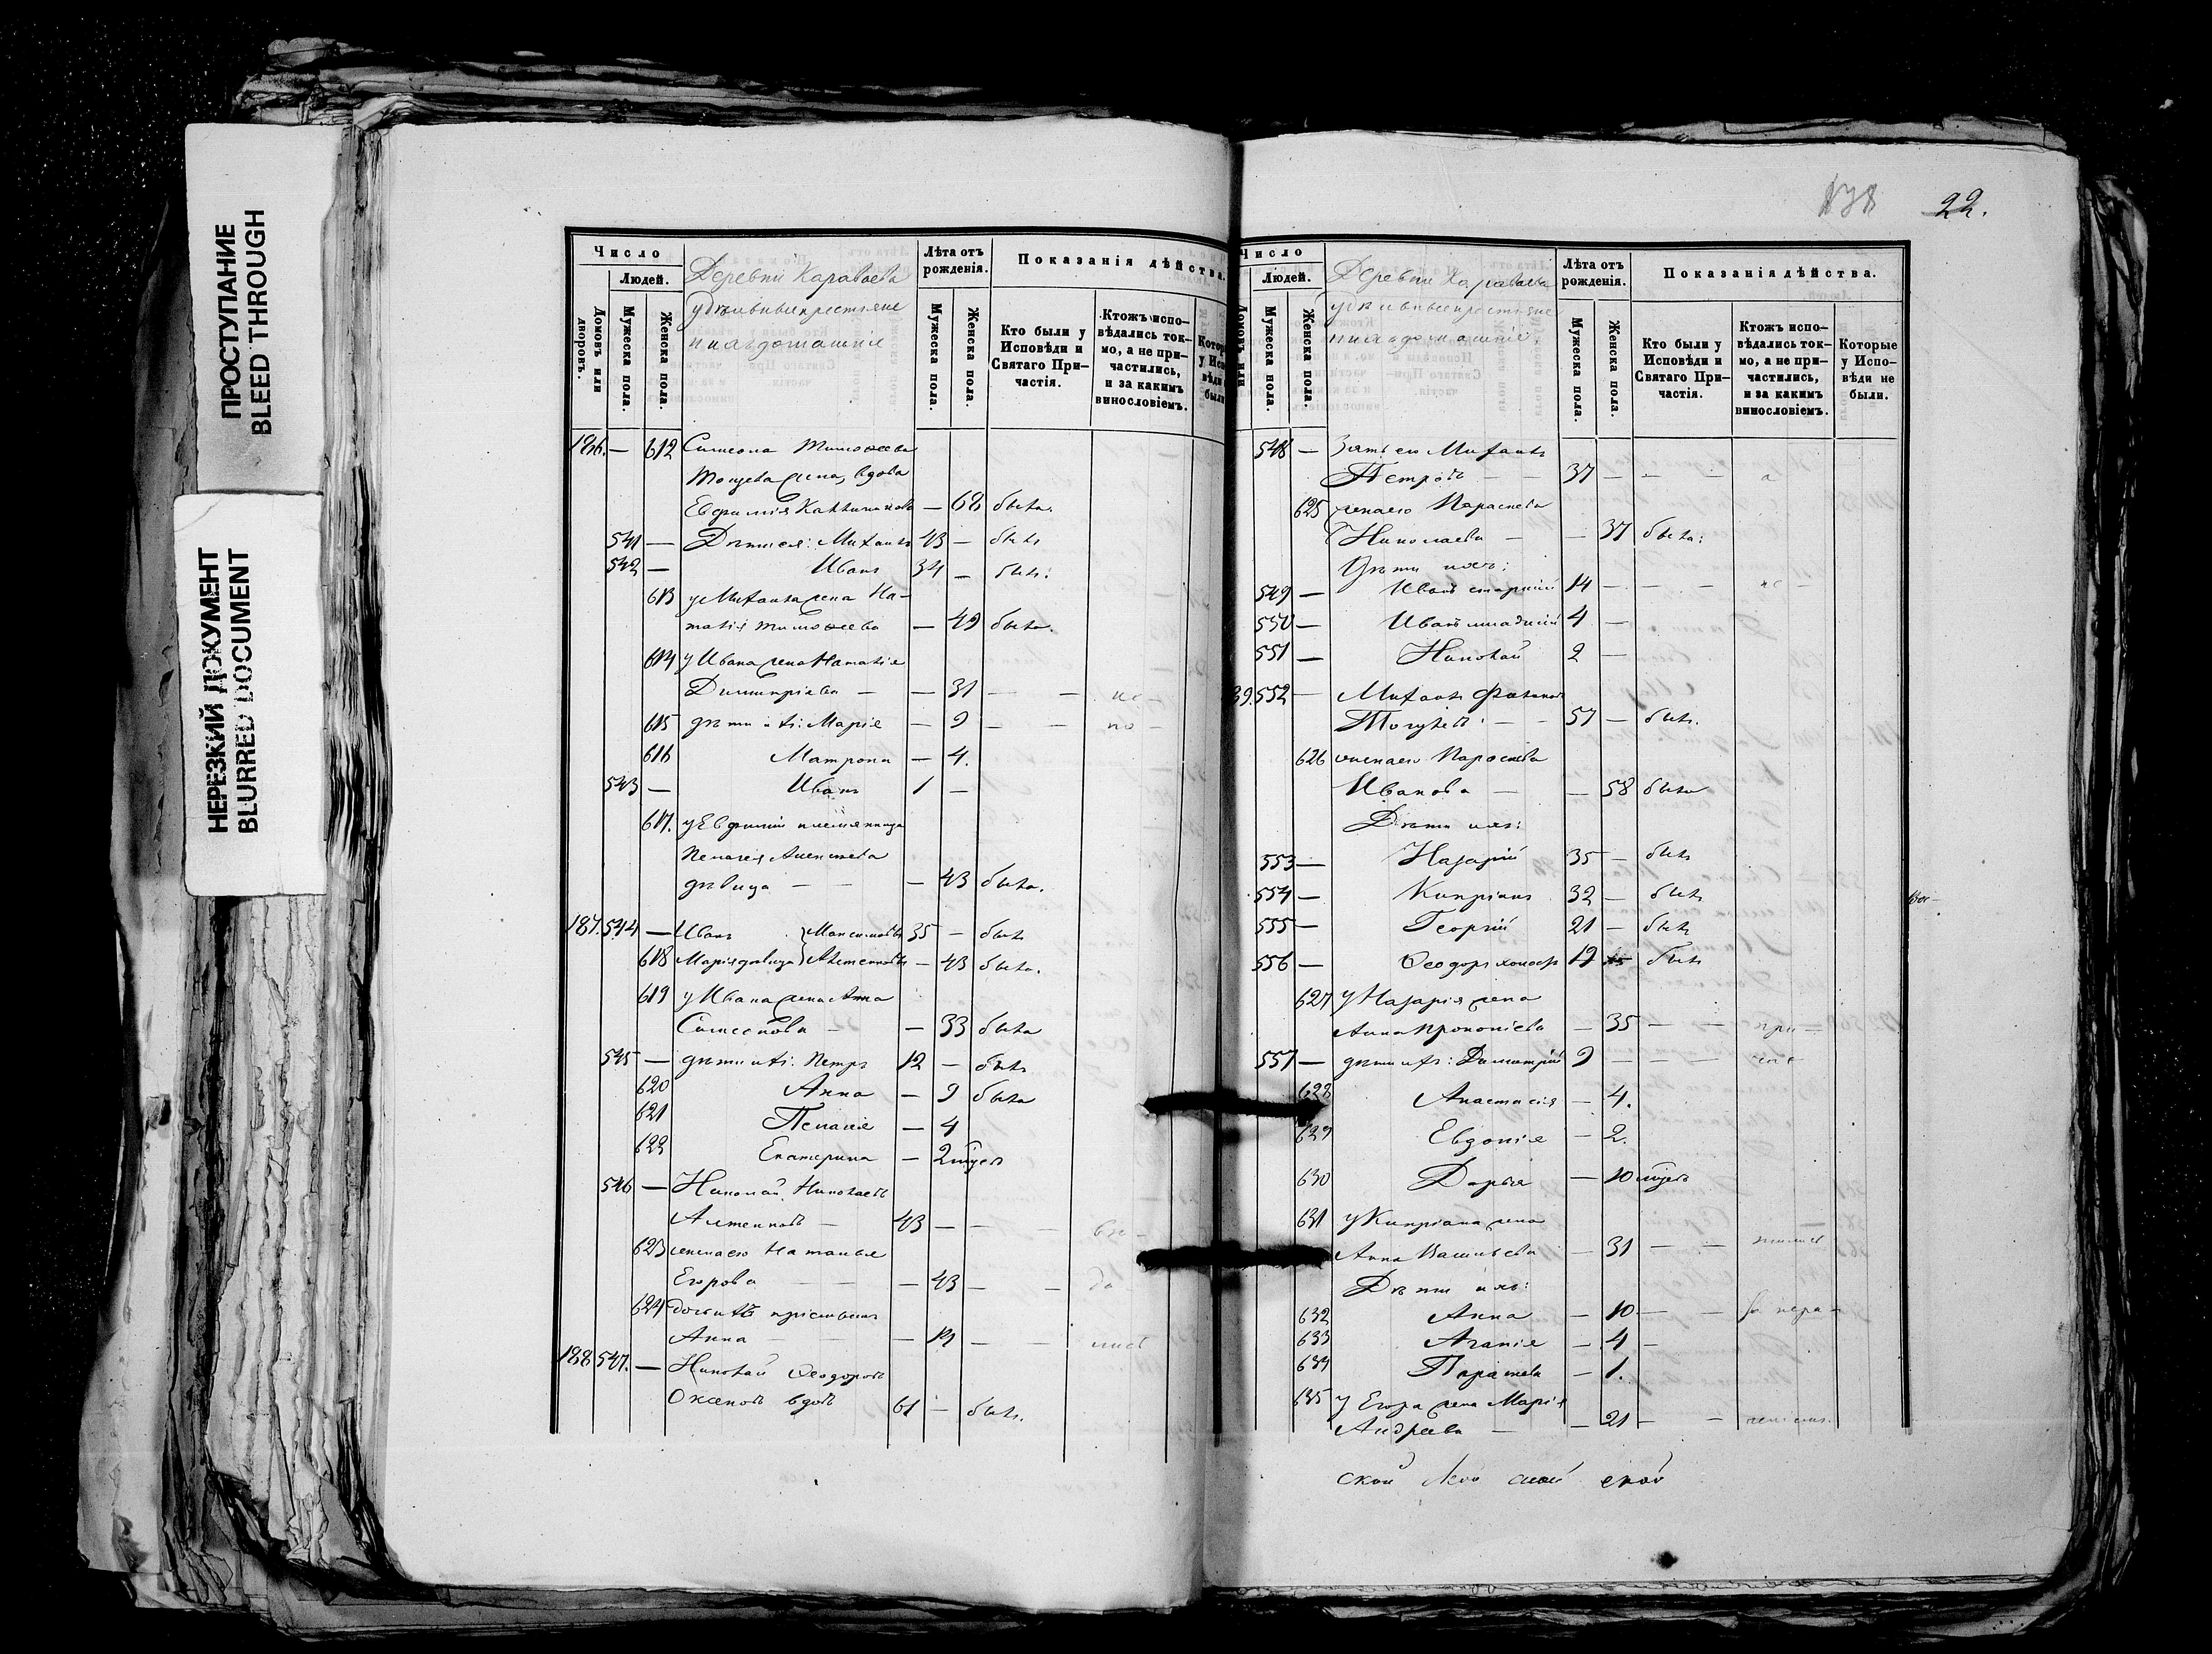 ПРОСТУПАНИЕ
BLEED THROUGH
НЕРЕЗКИЙ ДОКУМЕНТ
BLURRED DOCUMENT
Число
Людей.
Домовъ или дворовъ.
Мужеска пола.
Женска пола.
Деревни Караваева
удѣльные крестьяне
и ихъ домашніе
Лѣта отъ рожденія.
Мужеска пола.
Женска пола.
Показанія дѣйства.
Кто были у Исповѣди и Святаго При-частія.
Ктожъ испо-вѣдались ток-мо, а не при-частились, и за какимъ винословіемъ.
186. — 612 Симеона Тимоѳеева
жена, вдова
Евфимія — 68 была.
541 — Дѣти ея: Михаилъ 43 — былъ
542 — Иванъ 34 — былъ.
613 у Михаила жена На-
талія Тимоѳеева — 49 была.
614 у Ивана жена Наталія
Димитріева — — 31 — — не —
615 дѣти ихъ: Марія — 9 — — по —
616 Матрона — 4.
543 — Иванъ 1 —
617. у Евфиміи племянница
Пелагея Алексѣева
дѣвица — — — 43 была.
187. 544 — Иванъ } Максимовы 35 — былъ
618 Марія дѣвица } — 43 была.
619 у Ивана жена Анна
Симеонова — — 33 была
545 — дѣти ихъ: Петръ 12 — былъ
620 Анна — 9 была
621 Пелагія — 4
622 Екатерина — 2
546 — Николай Николаевъ
43 — — —
623 жена его Наталья
Егорова — — — 43 — —
624 дочь ихъ
Анна — — —
188 547. — Николай Ѳеодоровъ
вдовъ 61 — былъ.
138
22.
Число
Людей.
Домовъ или
Мужеска пола.
Женска пола.
Деревни Караваева
удѣльные крестьяне
и ихъ домашніе.
Лѣта отъ рожденія.
Мужеска пола.
Женска пола.
Показанія дѣйства.
Кто были у Исповѣди и Святаго При-частія.
Ктожъ испо-вѣдались ток-мо, а не при-частились, и за какимъ винословіемъ.
Которые у Испо-вѣди не были.
548 — Зять его Михаилъ
Петровъ — — 37 — — —
625 жена его Параскева
Николаева — — 37 была:
Дѣти ихъ:
549 — Иванъ старшій 14 — — —
550 — Иванъ младшій 4 —
551 — Николай 2 —
552 — Михаилъ
57 — былъ.
626 жена его Параскева
Иванова — — 58 была
Дѣти ихъ:
553 — Назарій 35 — былъ
554 — Кипріанъ 32 — былъ
555 — Георгій 21 — былъ
556 — Ѳеодоръ холостъ 19 былъ
627 у Назарія жена
Анна Прокопіева — 35 — — при —
557 — дѣти ихъ: Димитрій 9 — — —
628 Анастасія — 4.
629 Евдокія — 2.
630 Дарья — 10
631 у Кипріана жена
Анна Васильева — 31 — —
Дѣти ихъ:
632 Анна — 10 — —
633 Агапія — 4 —
634 Параскева — 1.
635 у Егора жена Марія
Андреева — — 21 — —